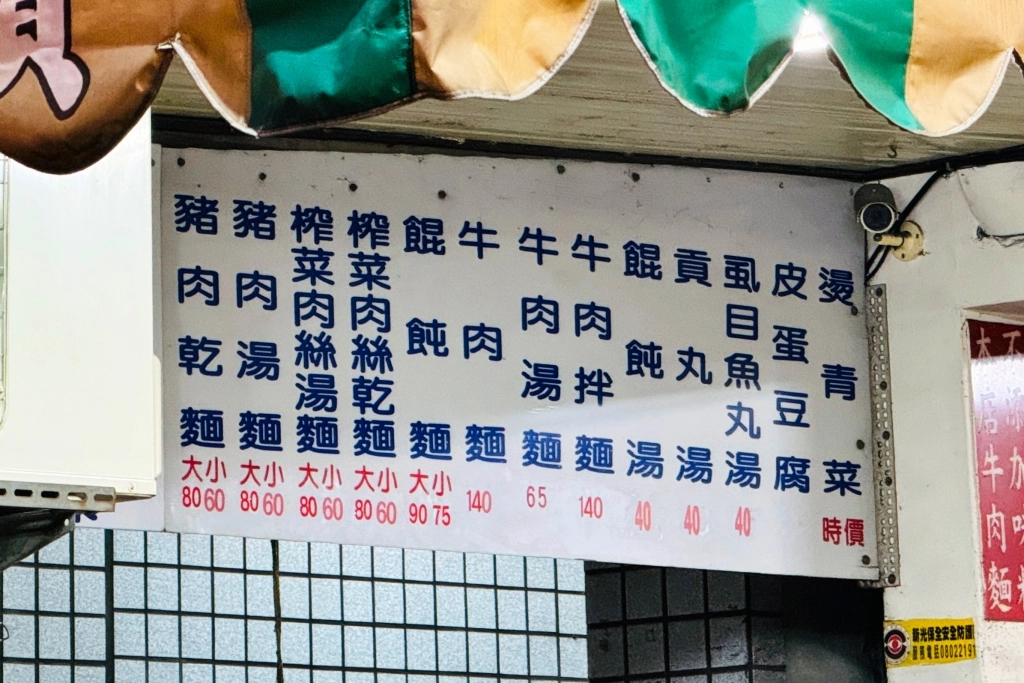 豬肉乾麵 大80 小60
豬肉湯麵 大80 小60
榨菜肉絲湯麵 大80 小60
榨菜肉絲乾麵 大80 小60
餛飩麵 大90 小75
牛肉麵 140
牛肉湯麵 65
牛肉拌麵 140
餛飩湯 40
貢丸湯 40
虱目魚丸湯 40
皮蛋豆腐
燙青菜 時價
店牛肉麵
新光保全安全防護
服務電話0802219